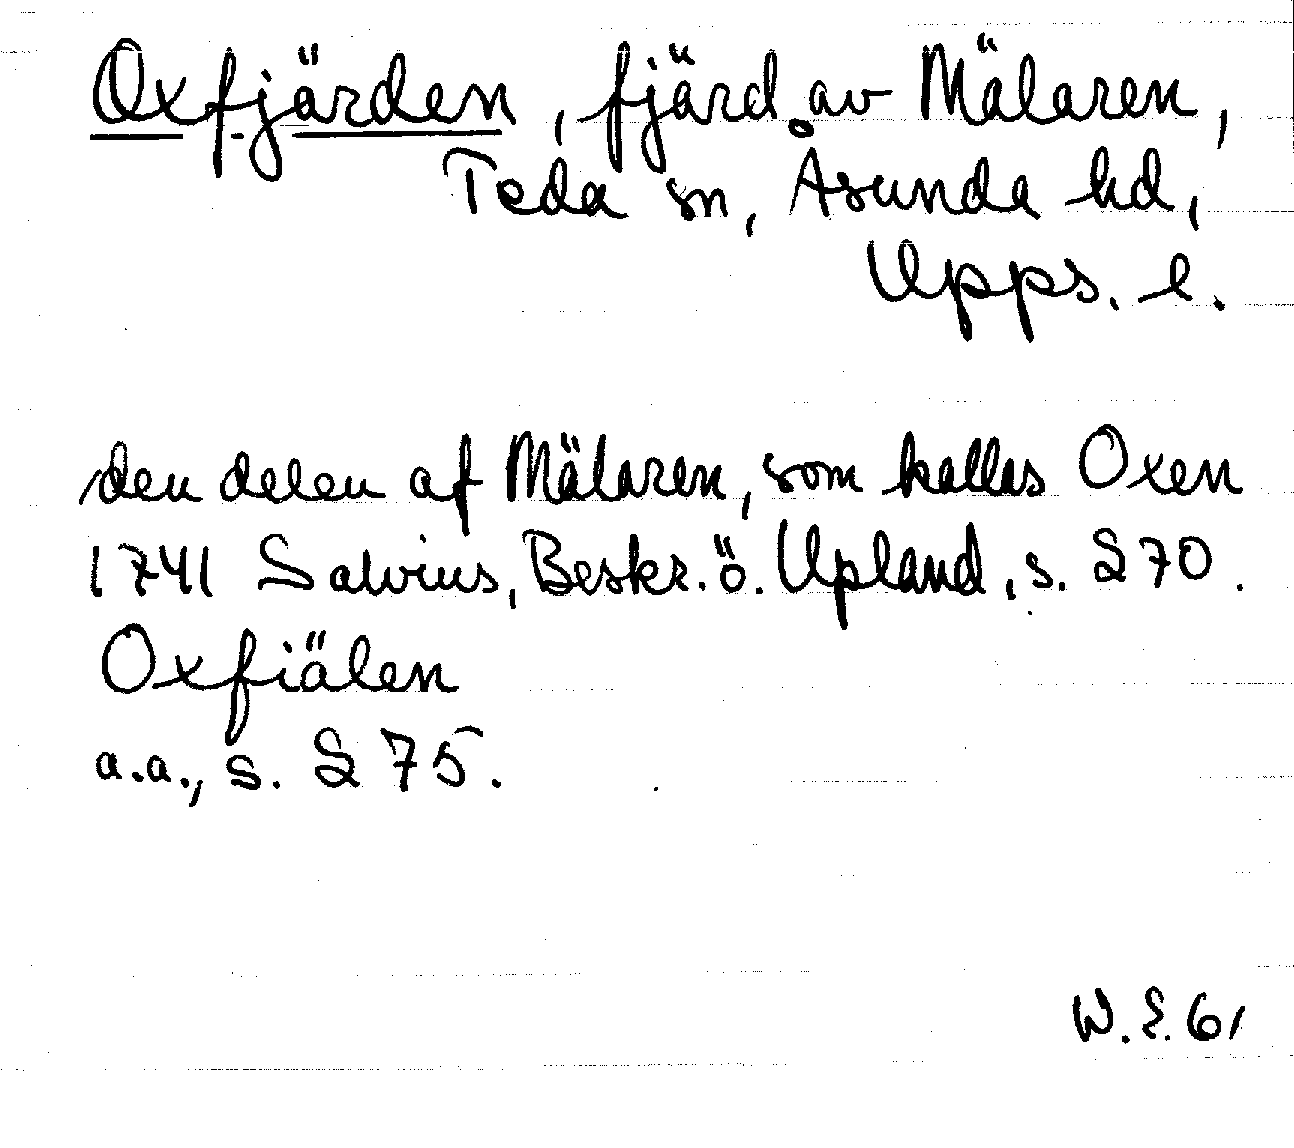 Oxfjärden, fjärd av Mälaren,
Teda sn, Åsunda hd,
Upps. l.
den delen af Mälaren, som kallas Oxen
1741 Salvius, Beskr. ö. Upland, s. 270.
Oxfiälen
a.a., s. 275.
W.E. 61